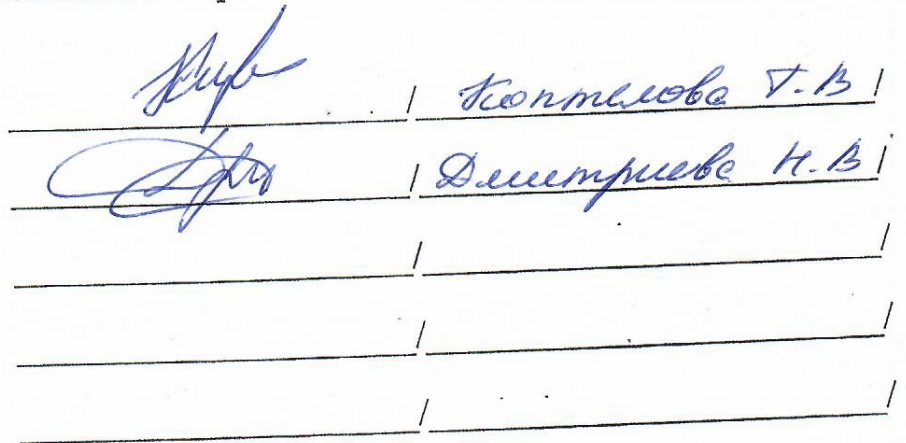 / Коптелова Т.В /
/ Дмитриева Н.В /
/ /
/ /
/ /